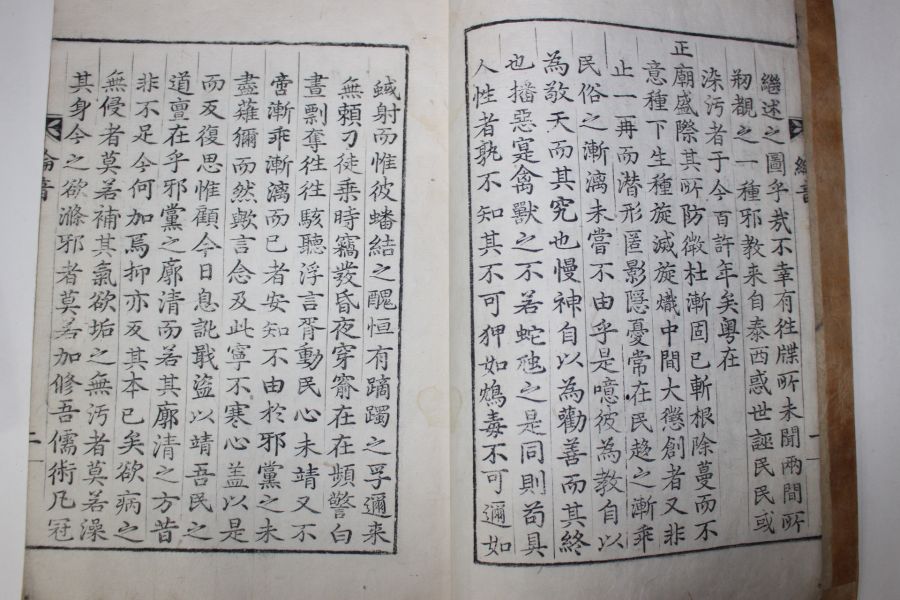 繼述之圖乎哉不幸有往牒所未聞兩間所
刱觀之一種邪教来自泰西惑世誣民民或
染污者于今百許年矣粤在
正廟盛際其所防微杜漸固已斬根除蔓而不
意種下生種旋滅旋熾中間大懲創者又非
止一再而潜形匿影隱憂常在民趍之漸乖
民俗之漸漓未嘗不由乎是噫彼為教自以
為敬天而其究也慢神自以為勸善而其終
也播惡寔禽獸之不若蛇虺之是同則苟具
人性者孰不知其不可狎如鴆毒不可邇如
綸音
一
蜮射而惟彼蟠結之醜恒有蹢躅之孚邇来
無賴刁徒乗時竊發昏夜穿窬在在頻警白
晝剽奪往往駭聽浮言胥動民心未靖又不
啻漸乖漸漓而已者安知不由於邪黨之未
盡薙獮而然歟言念及此寧不寒心盖以是
而反復思惟顧今日息訛戢盗以靖吾民之
道亶在乎邪黨之廓清而若其廓清之方昔
非不足今何加焉抑亦反其本已矣欲病之
無侵者莫若補其氣欲垢之無汚者莫若澡
其身今之欲滌邪者莫若加修吾儒術凡冠
綸音
二